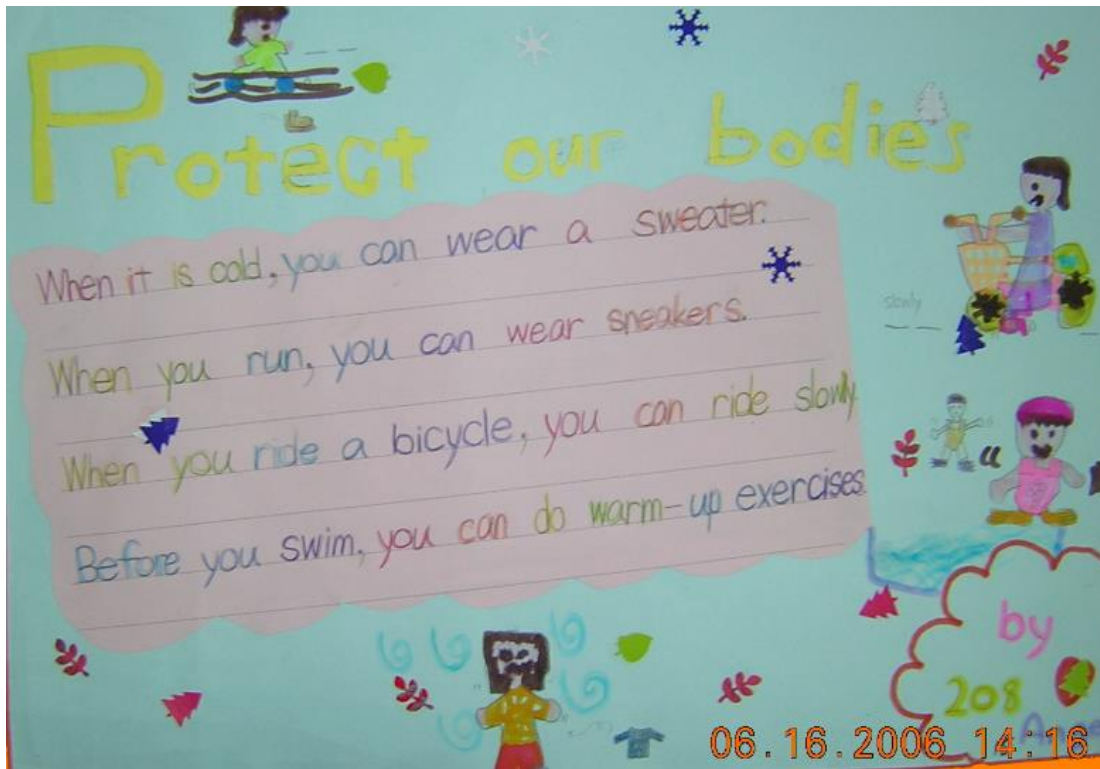 Protect our bodies
When it is cold, you can wear a sweater.
When you run, you can wear sneakers.
slowly
When you ride a bicycle, you can ride slowly.
Before you swim, you can do warm-up exercises.
by
208
06.16.2006 14:16